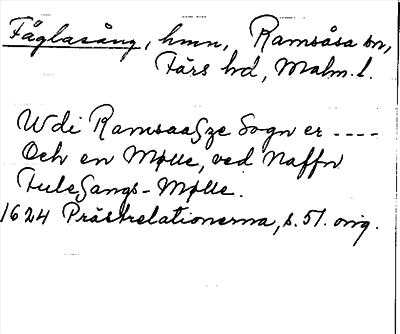 Fåglasång, hmn, Ramsåsa sn,
Färs hd, Malm. l.
Udi Ramsaaſze Sogn er ----
Och en Mølle, ved Naffn
Fuleſangs-Mølle.
1624 Prästrelationerna, s. 51. orig.